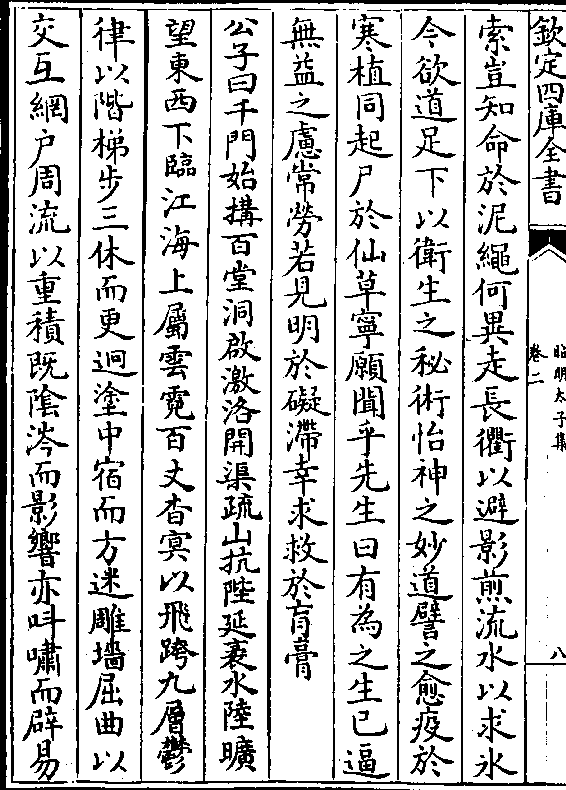 欽定四庫全書
昭明太子集
卷二
八
索豈知命於泥繩何異走長衢以避影煎流水以求氷
今欲道足下以衛生之秘術怡神之妙道譬之愈疫於
寒植同起尸於仙草寧願聞乎先生曰有為之生已逼
無益之慮常勞若見明於礙滯幸求救於肓膏
公子曰千門始搆百堂洞啟激洛開渠疏山抗陛延袤水陸曠
望東西下臨江海上屬雲霓百丈杳冥以飛跨九層鬱
律以階梯步三休而更迥塗中宿而方迷雕墻屈曲以
交互網户周流以重積既陰涔而影響亦呌嘯而辟易